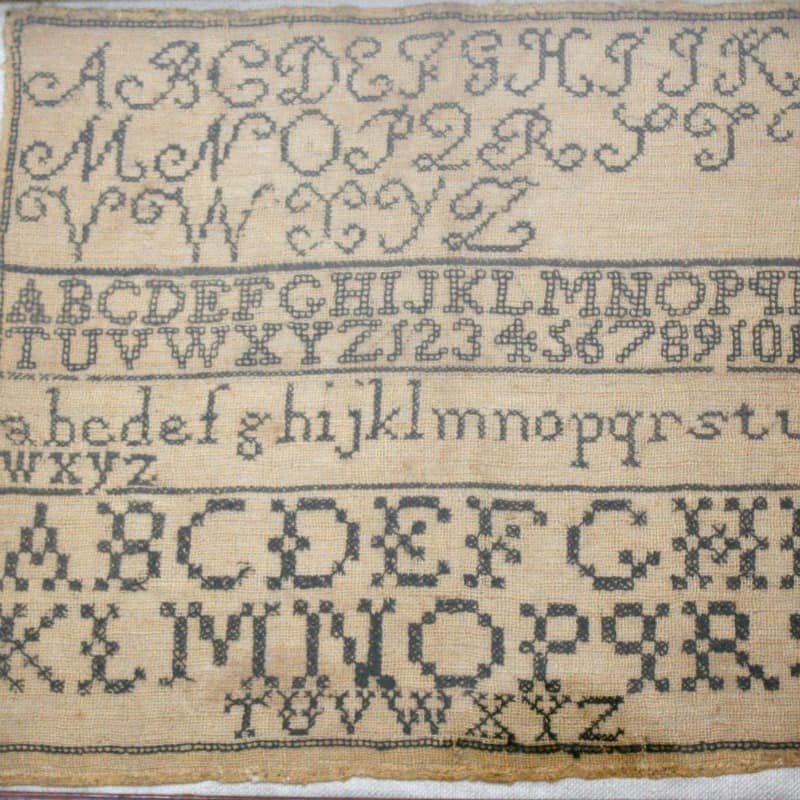 A B C D E F G H I J K
M N O P Q R S T
V W X Y Z
A B C D E F G H I J K L M N O P Q
T U V W X Y Z 1 2 3 4 5 6 7 8 9 10
a b c d e f g h i j k l m n o p q r s t u
w x y z
A B C D E F G H
K L M N O P Q R
T U V W X Y Z